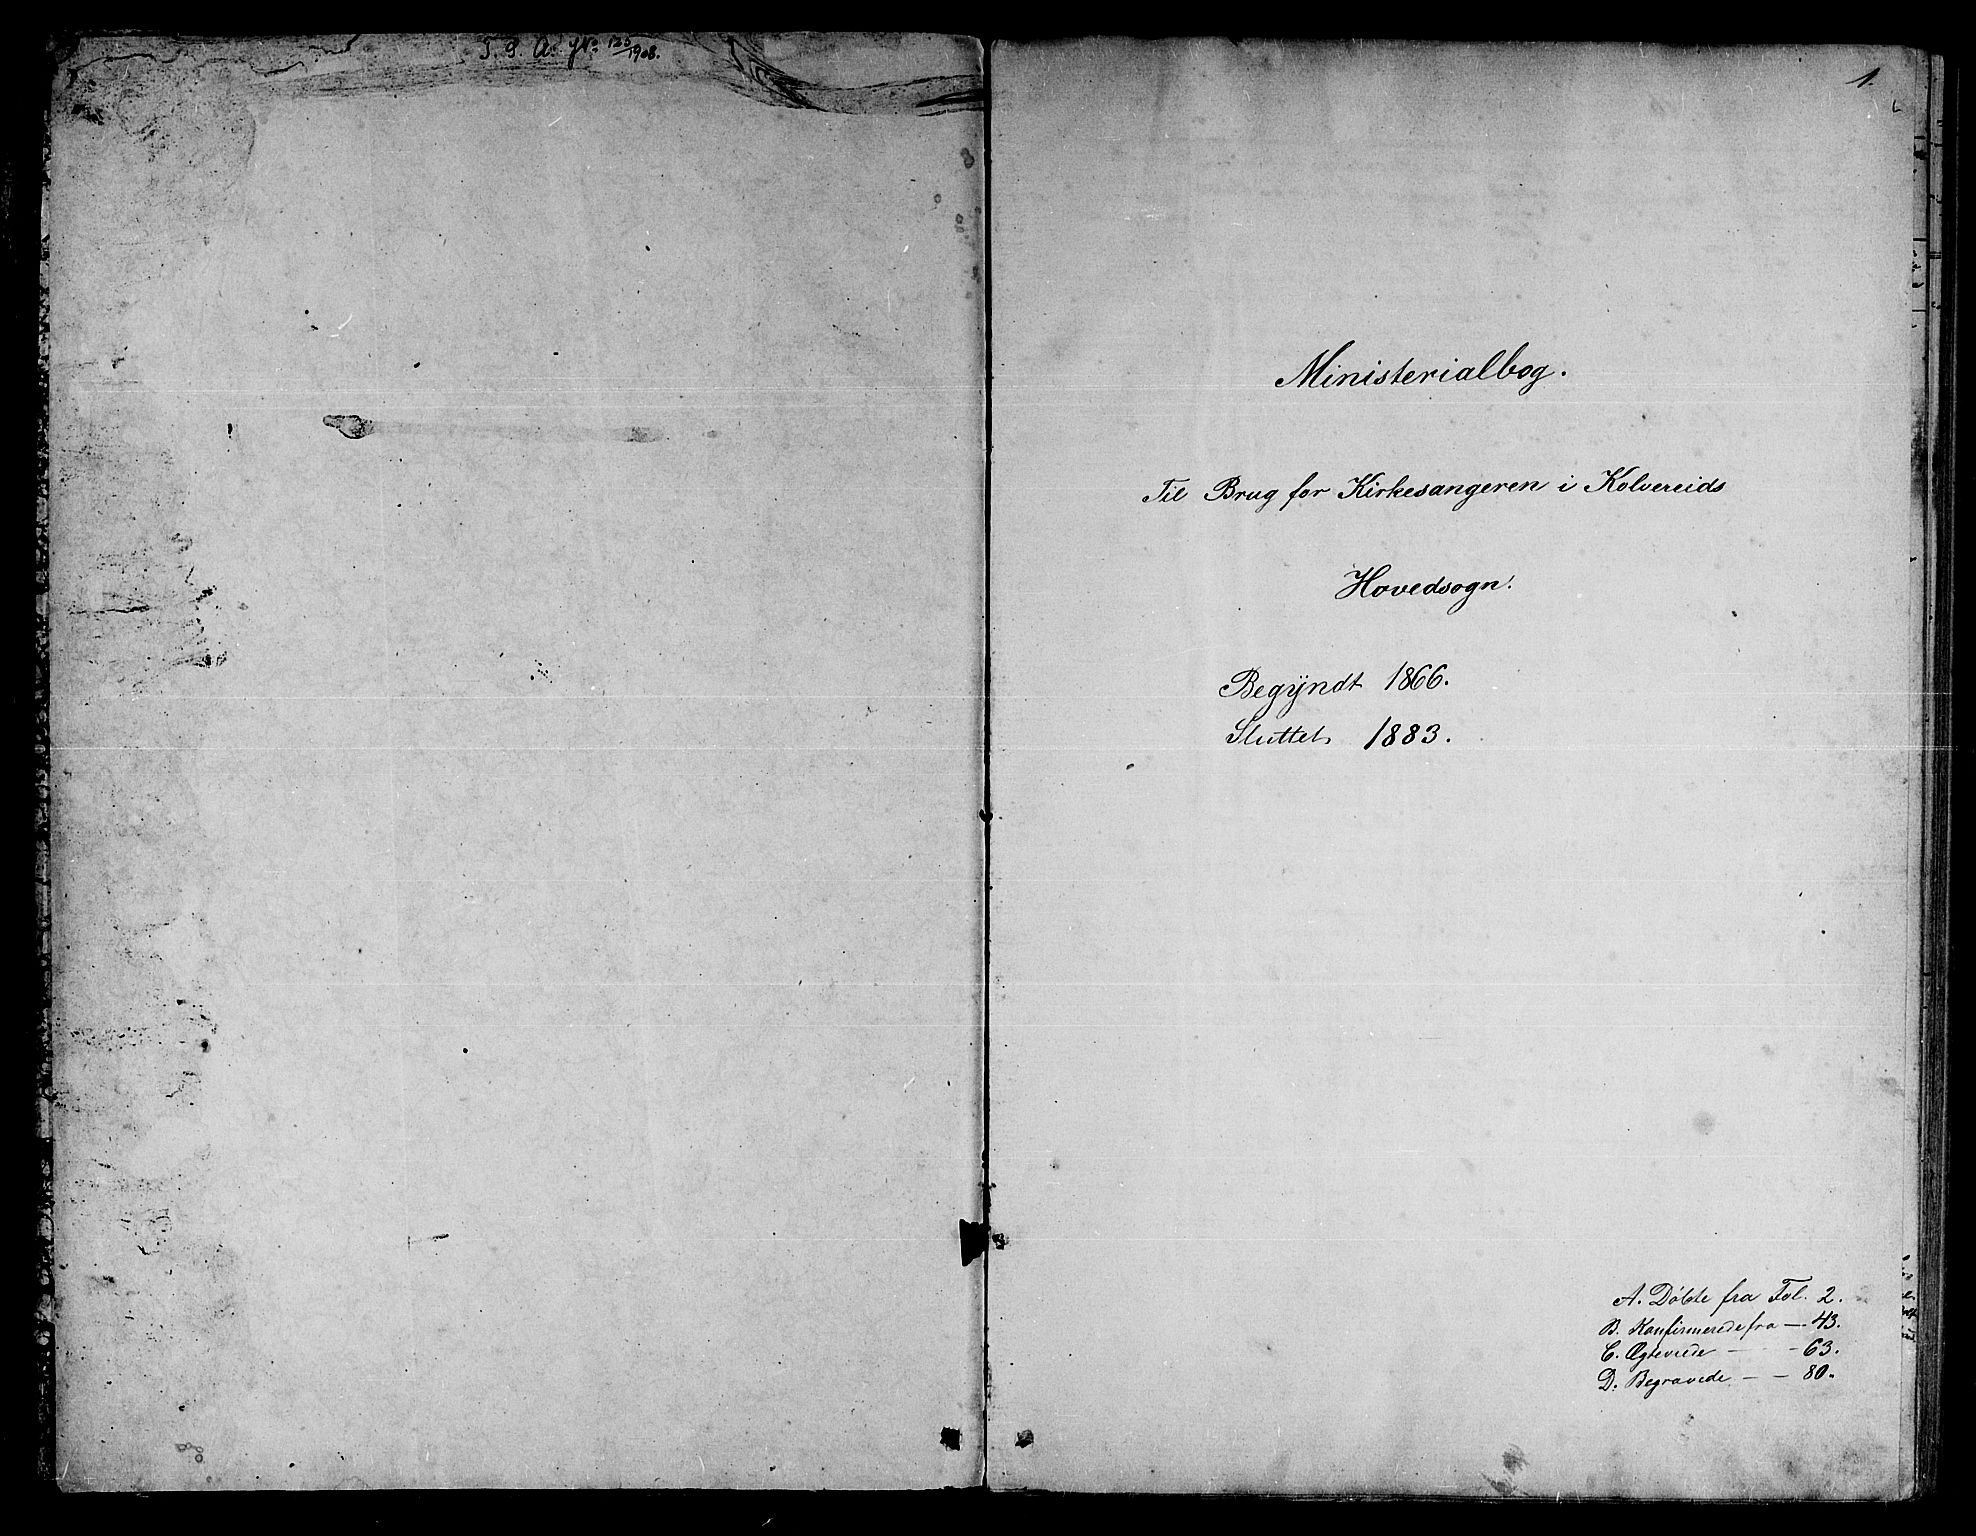 T. S. A. J№ 125/1908.
1.
Ministerialbog.
Til Brug for Kirkesangeren i Kolvereids
Hovedsogn.
Begyndt 1866.
Sluttet 1883.
A. Døbte fra Fol. 2.
B. Konfirmerede fra — 43.
C. Ægteviede — — 63.
D. Begravede — — 80.